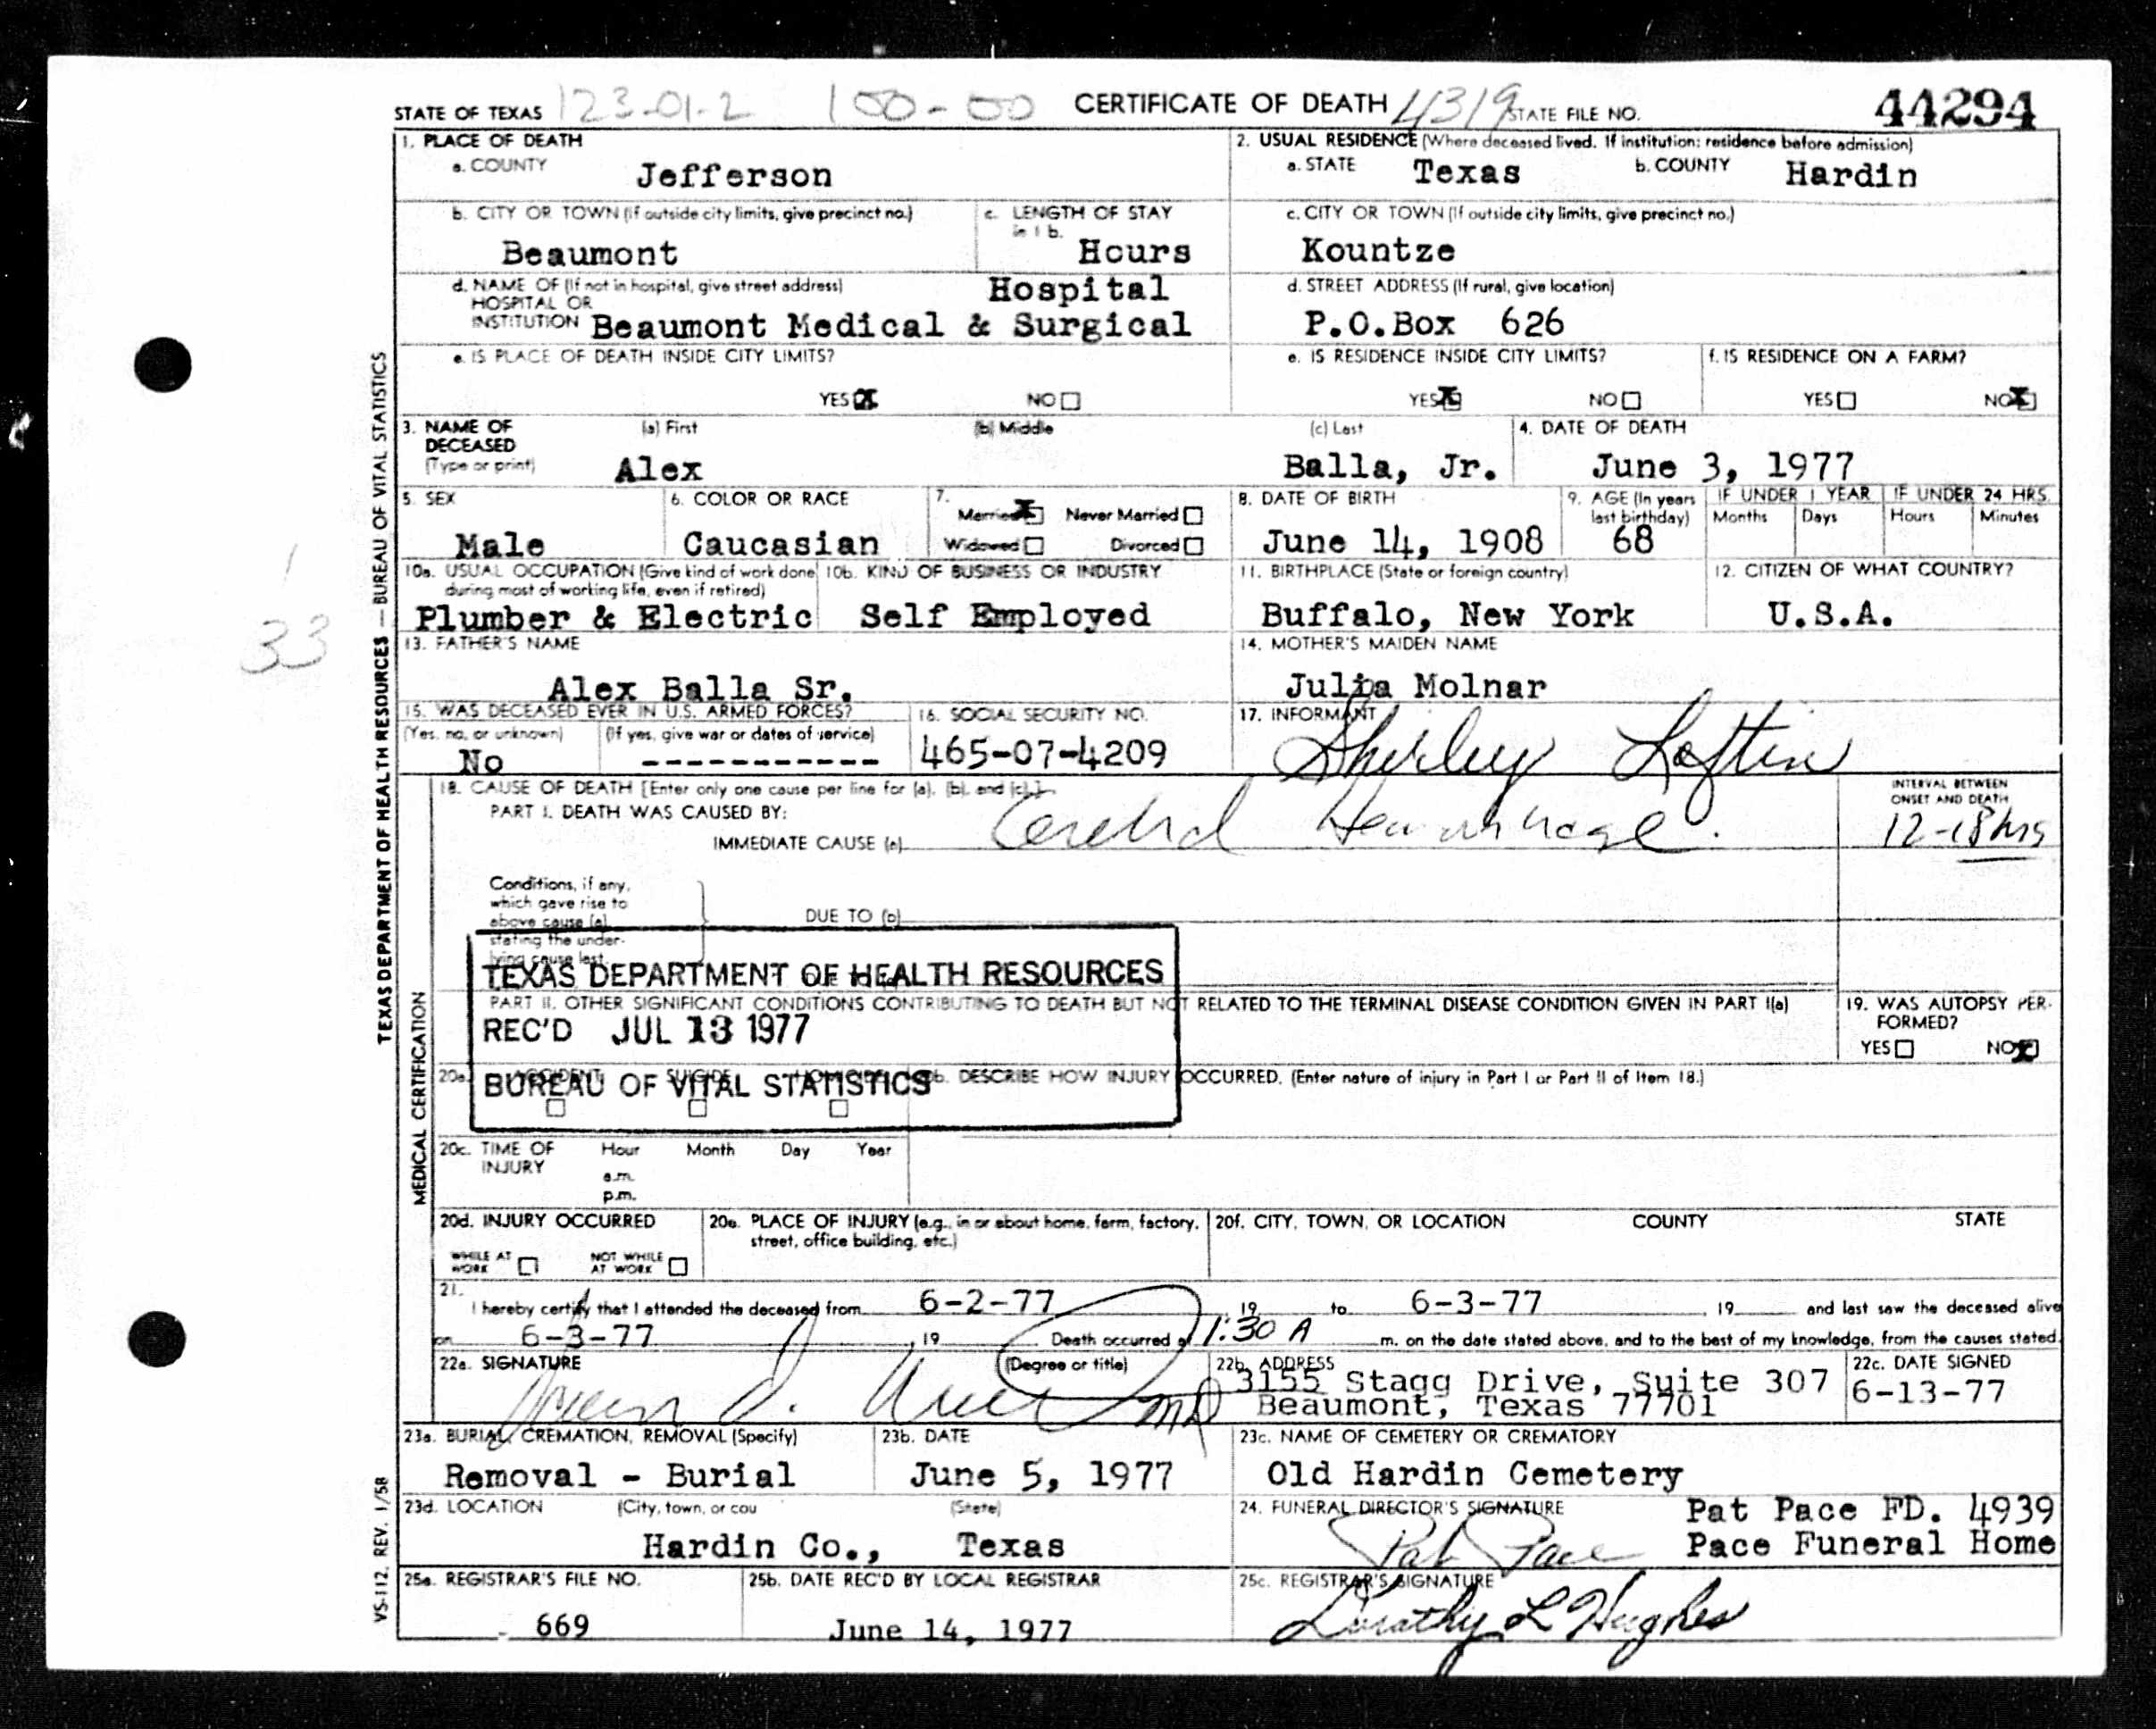 STATE OF TEXAS 123-01-2 100-00 CERTIFICATE OF DEATH 4319 STATE FILE NO. 44294
1. PLACE OF DEATH
a. COUNTY Jefferson
2. USUAL RESIDENCE (Where deceased lived. If institution: residence before admission)
a. STATE Texas b. COUNTY Hardin
b. CITY OR TOWN (If outside city limits, give precinct no.) Beaumont
c. LENGTH OF STAY in 1 b. Hours
c. CITY OR TOWN (If outside city limits, give precinct no.) Kountze
d. NAME OF (If not in hospital, give street address) Hospital
HOSPITAL OR
INSTITUTION Beaumont Medical & Surgical
d. STREET ADDRESS (If rural, give location)
P.O.Box 626
e. IS PLACE OF DEATH INSIDE CITY LIMITS?
YES X NO
e. IS RESIDENCE INSIDE CITY LIMITS?
YES X NO
f. IS RESIDENCE ON A FARM?
YES NO X
3. NAME OF DECEASED (Type or print)
(a) First (b) Middle (c) Last
Alex Balla, Jr.
4. DATE OF DEATH
June 3, 1977
5. SEX
Male
6. COLOR OR RACE
Caucasian
7.
Married X Never Married
Widowed Divorced
8. DATE OF BIRTH
June 14, 1908
9. AGE (In years last birthday)
68
IF UNDER 1 YEAR IF UNDER 24 HRS.
Months Days Hours Minutes
10a. USUAL OCCUPATION (Give kind of work done during most of working life, even if retired)
Plumber & Electric
10b. KIND OF BUSINESS OR INDUSTRY
Self Employed
11. BIRTHPLACE (State or foreign country)
Buffalo, New York
12. CITIZEN OF WHAT COUNTRY?
U.S.A.
13. FATHER'S NAME
Alex Balla Sr.
14. MOTHER'S MAIDEN NAME
Julia Molnar
15. WAS DECEASED EVER IN U.S. ARMED FORCES?
(Yes, no, or unknown) (If yes, give war or dates of service)
No -----------
16. SOCIAL SECURITY NO.
465-07-4209
17. INFORMANT
Shirley Loftin
18. CAUSE OF DEATH [Enter only one cause per line for (a), (b), and (c).]
PART I. DEATH WAS CAUSED BY:
IMMEDIATE CAUSE (a) Cerebral Hemorrhage.
INTERVAL BETWEEN ONSET AND DEATH
12-18 hrs
Conditions, if any,
which gave rise to
above cause (a)
stating the under-
lying cause last.
DUE TO (b)
TEXAS DEPARTMENT OF HEALTH RESOURCES
REC'D JUL 13 1977
BUREAU OF VITAL STATISTICS
PART II. OTHER SIGNIFICANT CONDITIONS CONTRIBUTING TO DEATH BUT NOT RELATED TO THE TERMINAL DISEASE CONDITION GIVEN IN PART I(a)
19. WAS AUTOPSY PERFORMED?
YES NO X
20a. ACCIDENT SUICIDE
DESCRIBE HOW INJURY OCCURRED. (Enter nature of injury in Part I or Part II of Item 18.)
20c. TIME OF INJURY Hour Month Day Year
a.m.
p.m.
20d. INJURY OCCURRED
WHILE AT WORK NOT WHILE AT WORK
20e. PLACE OF INJURY (e.g., in or about home, farm, factory, street, office building, etc.)
20f. CITY, TOWN, OR LOCATION COUNTY STATE
21.
I hereby certify that I attended the deceased from 6-2-77, 19 to 6-3-77, 19 and last saw the deceased alive
on 6-3-77, 19 Death occurred at 1:30 A m. on the date stated above, and to the best of my knowledge, from the causes stated.
22a. SIGNATURE (Degree or title)
MD
22b. ADDRESS
3155 Stagg Drive, Suite 307
Beaumont, Texas 77701
22c. DATE SIGNED
6-13-77
23a. BURIAL, CREMATION, REMOVAL (Specify)
Removal - Burial
23b. DATE
June 5, 1977
23c. NAME OF CEMETERY OR CREMATORY
Old Hardin Cemetery
23d. LOCATION (City, town, or cou (State)
Hardin Co., Texas
24. FUNERAL DIRECTOR'S SIGNATURE Pat Pace FD. 4939
Pat Pace Pace Funeral Home
25a. REGISTRAR'S FILE NO.
669
25b. DATE REC'D BY LOCAL REGISTRAR
June 14, 1977
25c. REGISTRAR'S SIGNATURE
Dorothy L Hughes
TEXAS DEPARTMENT OF HEALTH RESOURCES — BUREAU OF VITAL STATISTICS
MEDICAL CERTIFICATION
VS-112, REV. 1/58
1
33